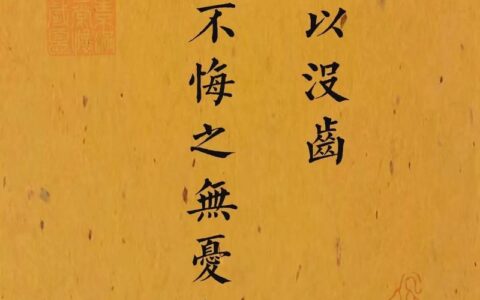 以没齒
不悔之無憂